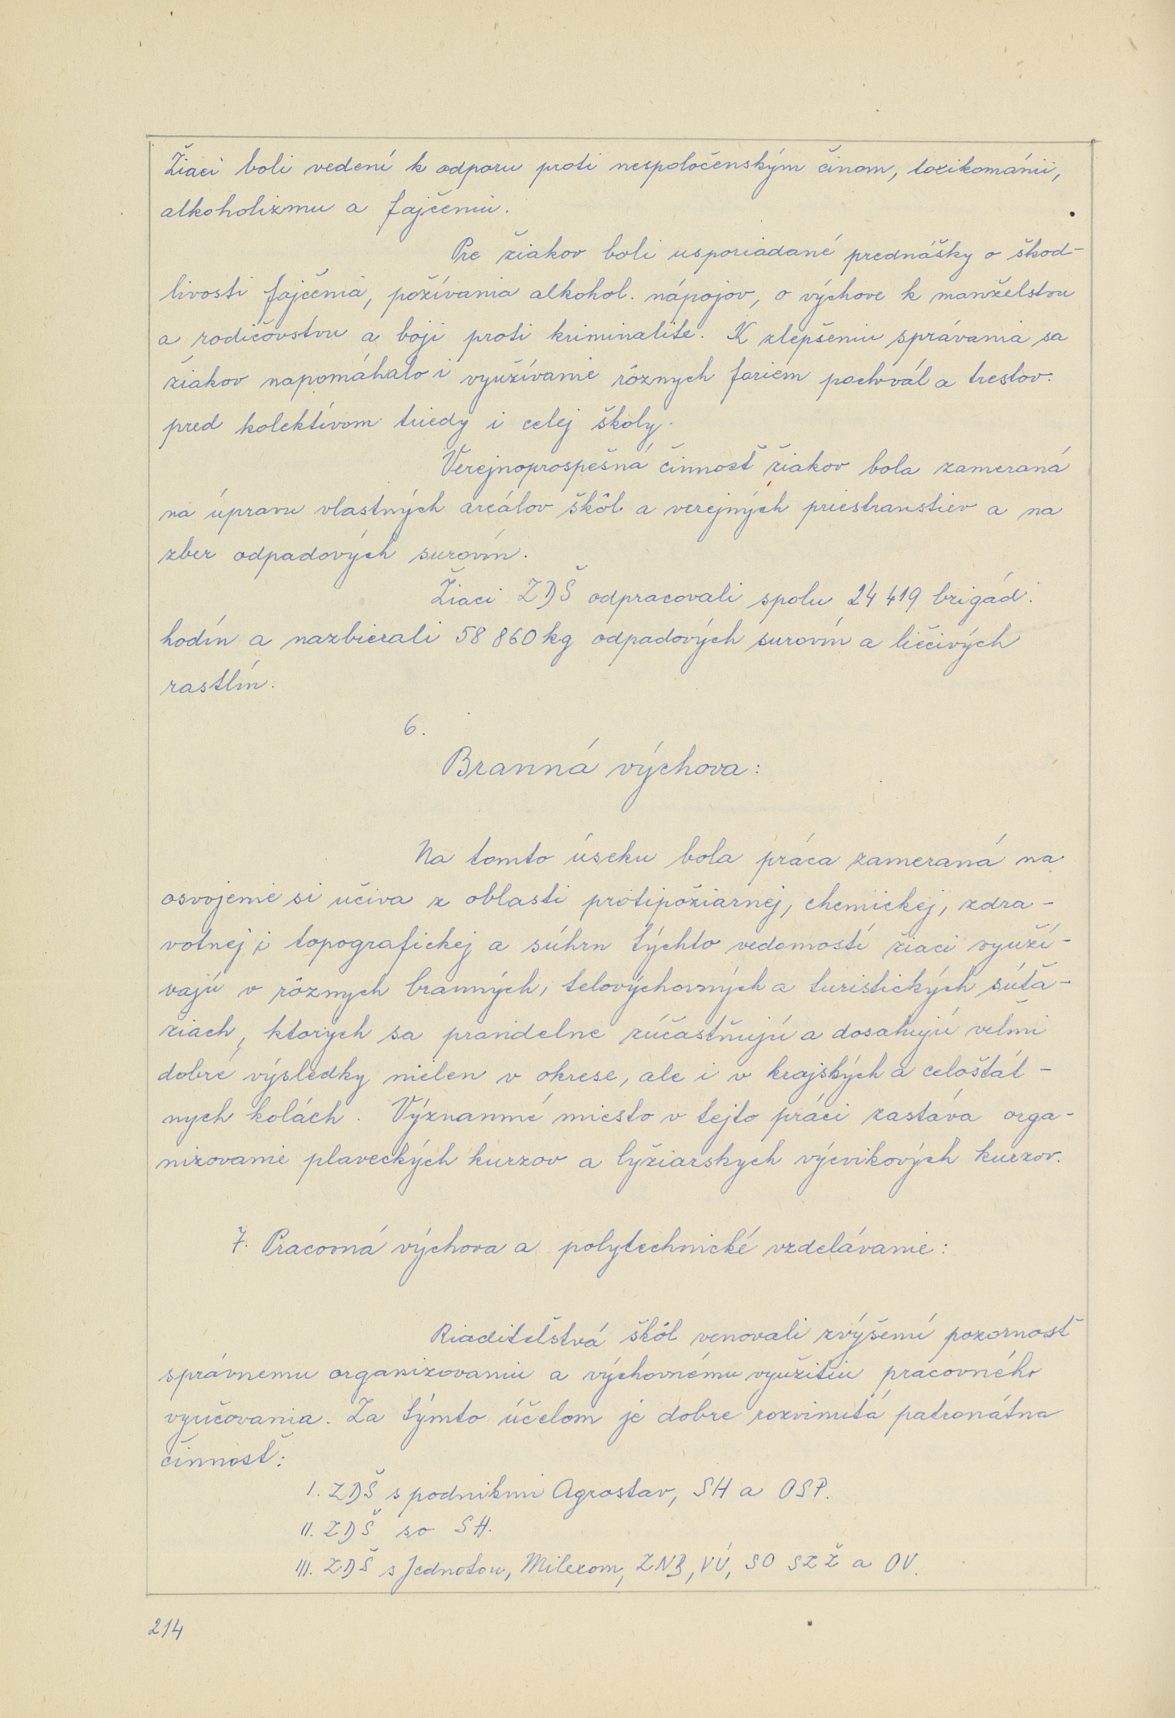 Žiaci boli vedení k odporu proti nespoločenským činom, toxikománii,
alkoholizmu a fajčeniu.
Pre žiakov boli usporiadané prednášky o škod-
livosti fajčenia, požívania alkohol. nápojov, o výchove k manželstvu
a rodičovstvu a boji proti kriminalite. K zlepšeniu správania sa
žiakov napomáhalo i využívanie rôznych foriem pochvál a trestov
pred kolektívom triedy i celej školy.
Verejnoprospešná činnosť žiakov bola zameraná
na úpravu vlastných areálov škôl a verejných priestranstiev a na
zber odpadových surovín.
Žiaci ZDŠ odpracovali spolu 24 419 brigád.
hodín a nazbierali 58 860 kg odpadových surovín a liečivých
rastlín.
6.
Branná výchova:
Na tomto úseku bola práca zameraná na
osvojenie si učiva z oblasti protipožiarnej, chemickej, zdra-
votnej i topografickej a súhrn týchto vedomostí žiaci využí-
vajú v rôznych branných, telovýchovných a turistických súťa-
žiach, ktorych sa pravidelne zúčastňujú a dosahujú veľmi
dobré výsledky nielen v okrese, ale i v krajských a celoštát-
nych kolách. Významné miesto v tejto práci zastáva orga-
nizovanie plaveckých kurzov a lyžiarskych výcvikových kurzov.
7. Pracovná výchova a polytechnické vzdelávanie:
Riaditeľstvá škôl venovali zvýšenú pozornosť
správnemu organizovaniu a výchovnému využitiu pracovného
vyučovania. Za týmto účelom je dobre rozvinutá patronátna
činnosť:
I. ZDŠ s podnikmi Agrostav, SH a OSP.
II. ZDŠ so SH.
III. ZDŠ s Jednotou, Milexom, ZNB, VÚ, SO SZŽ a OV.
214